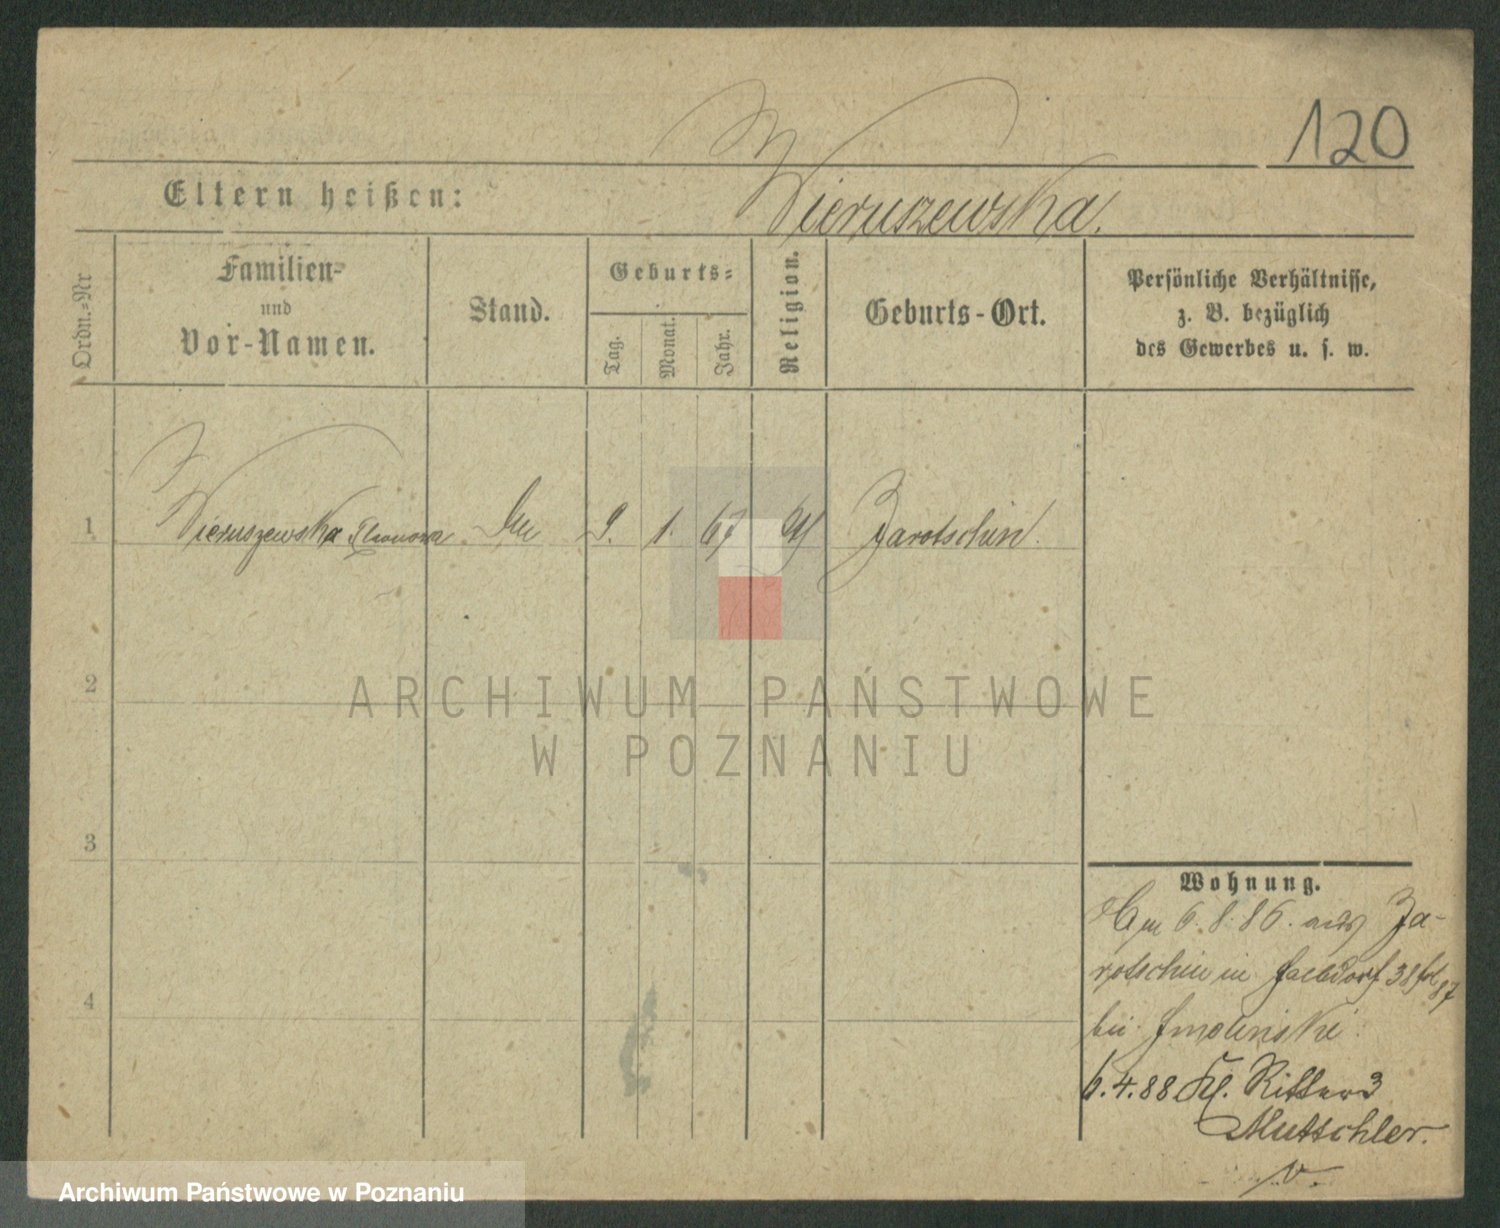 120
Eltern heißen:
Wieruszewska.
Ordn.-Nr
Familien-
und
Vor-Namen.
Stand.
Geburts-
Tag.
Monat.
Jahr.
Religion.
Geburts-Ort.
Persönliche Verhältnisse,
z. B. bezüglich
des Gewerbes u. s. w.
1 Wieruszewska Eleonora 9. 1. 67 Jarotschin.
2
3
4
ARCHIWUM PAŃSTWOWE
W POZNANIU
Wohnung.
6. 8. 86. aus Ja-
rotschin in 38
bei Smolinski
6. 4. 88 Kl. Ritter 3
Mutschler.
Archiwum Państwowe w Poznaniu